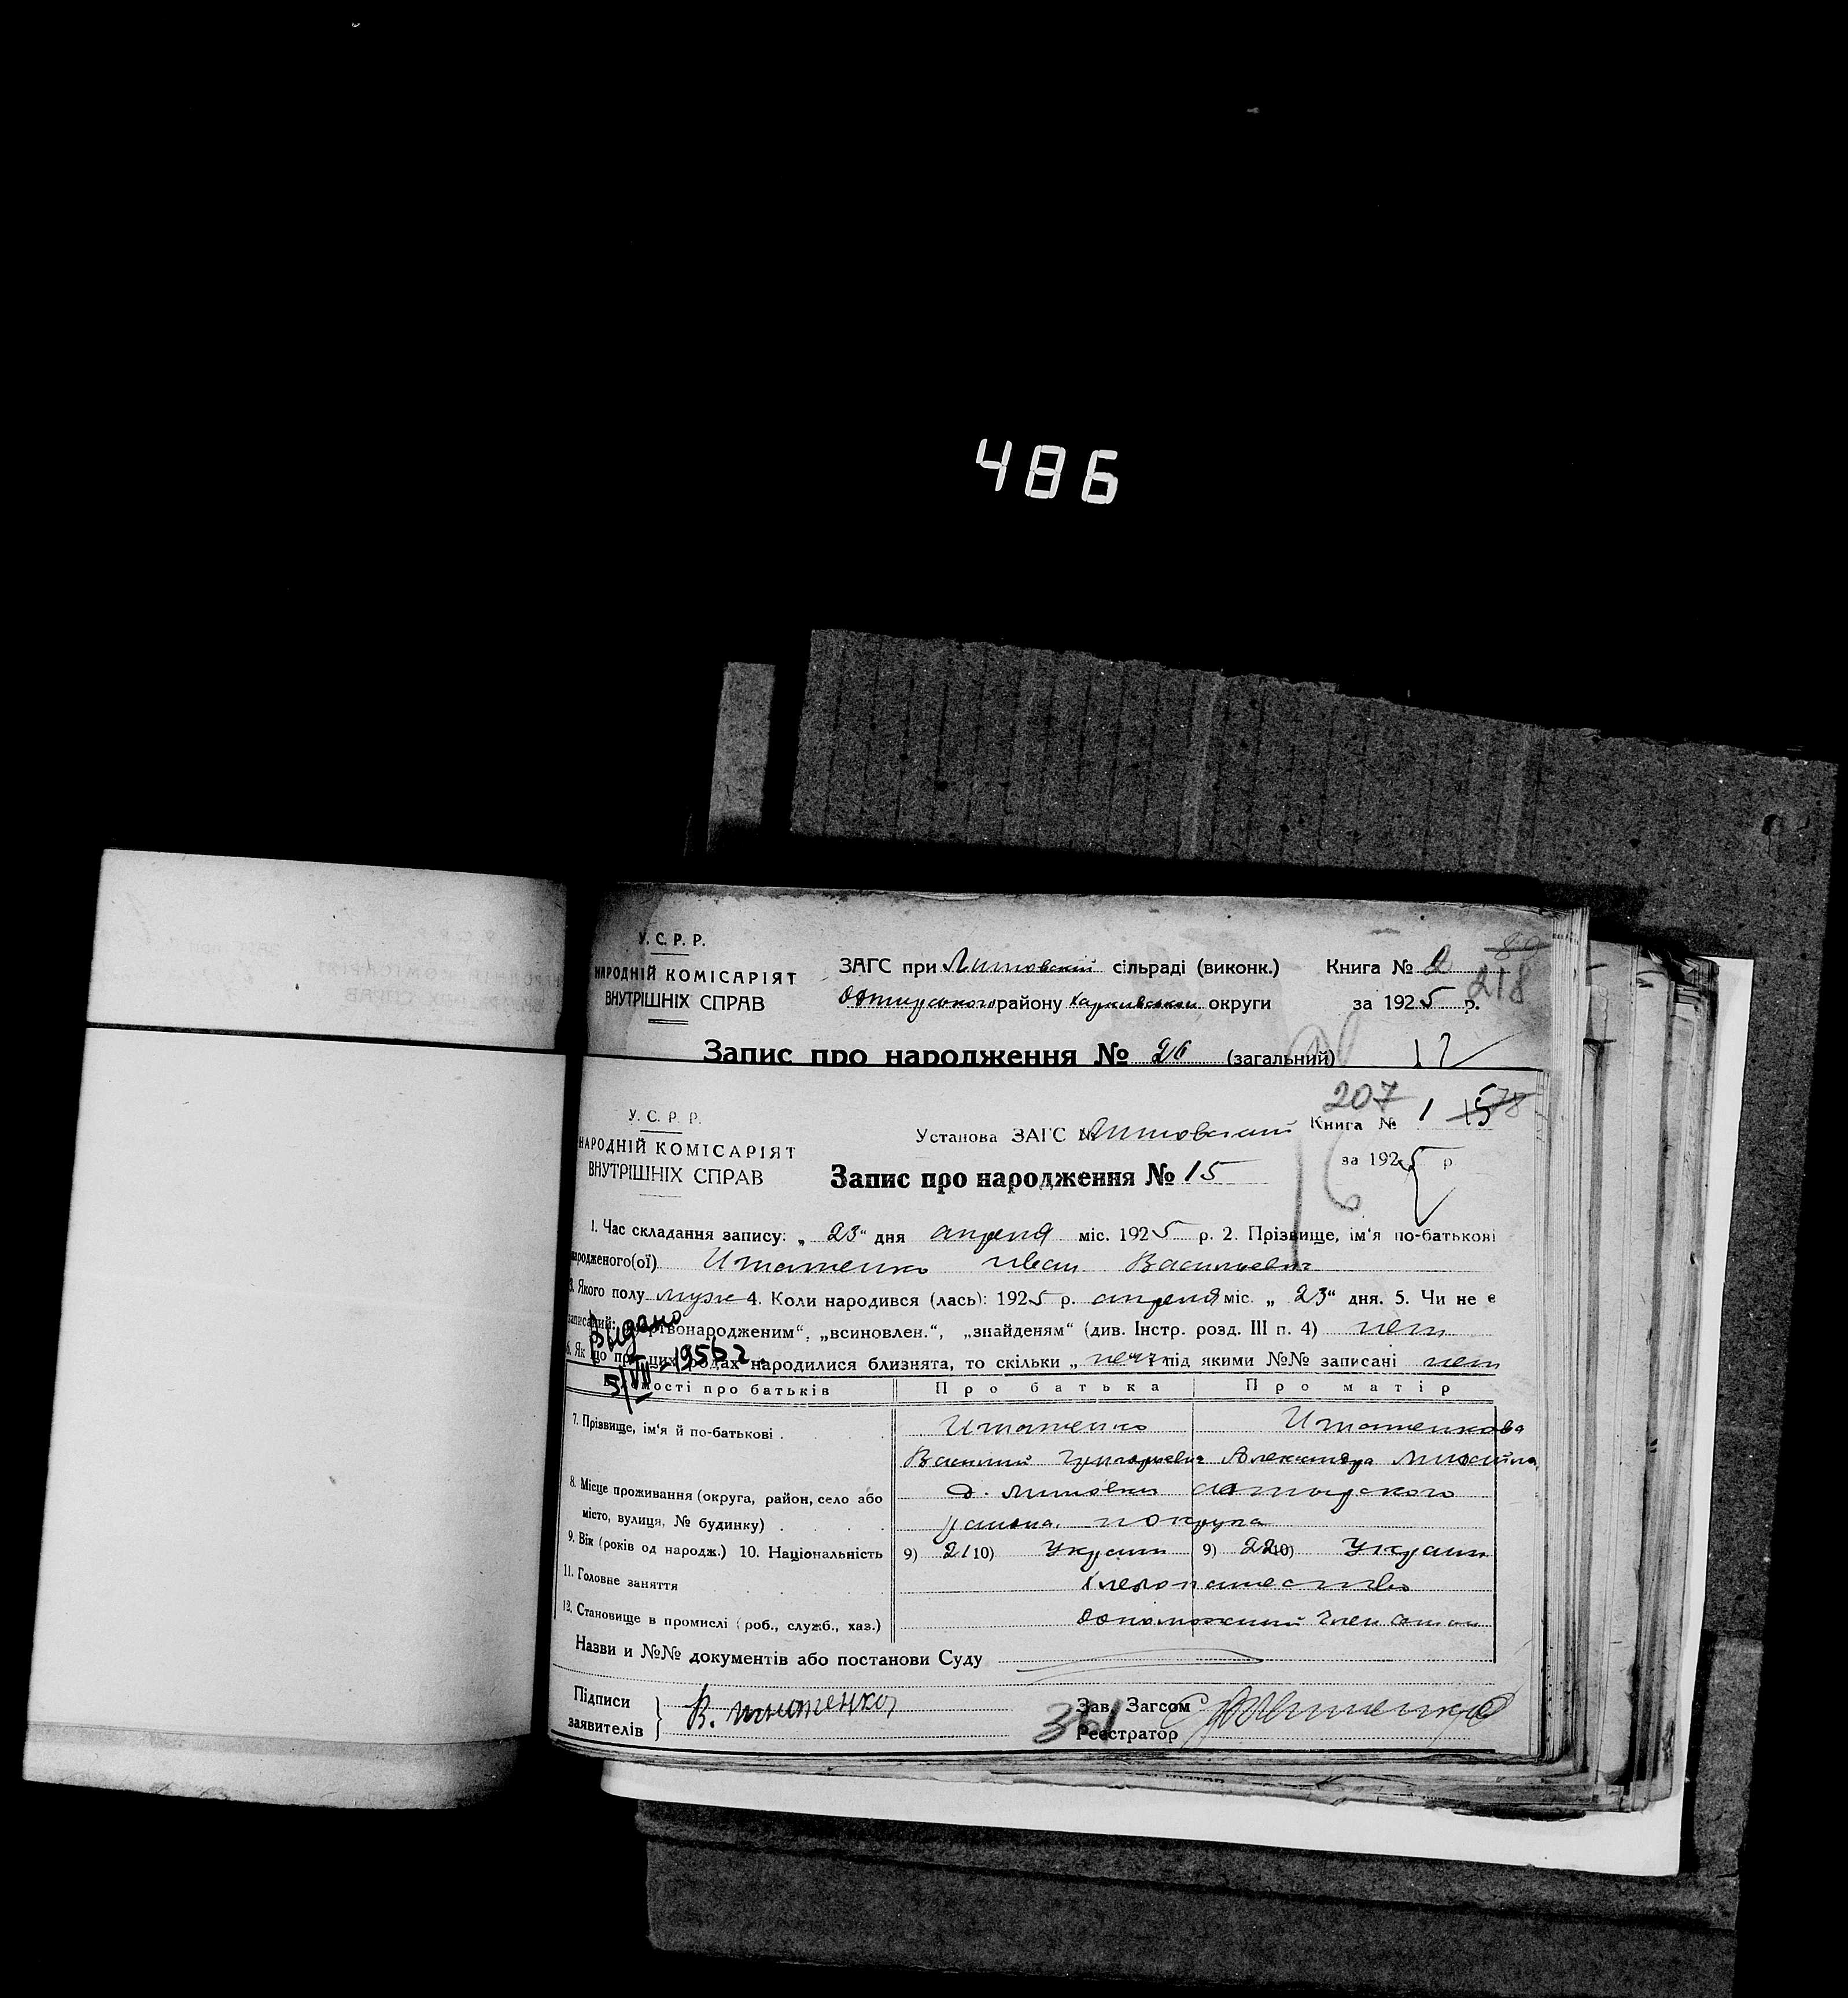 486
У. С. Р. Р.
НАРОДНІЙ КОМІСАРІЯТ
ВНУТРІШНІХ СПРАВ
ЗАГС при Литовский сільраді (виконк.) Книга № 2
району округи за 1925 р.
80
218
Запис про народження № 26 (загальний)
У. С. Р. Р.
НАРОДНІЙ КОМІСАРІЯТ
ВНУТРІШНІХ СПРАВ
207
Установа ЗАГС Литовский Книга № 1
за 1925 р
Запис про народження № 15
1. Час складання запису: „ 23“ дня апреля міс. 1925 р. 2. Прізвище, ім'я по-батькові
народженого(ої) Иван Васильевич
3. Якого полу муж 4. Коли народився (лась): 1925 р. апреля міс. „ 23“ дня. 5. Чи не є
записаний: „мертвонародженим“, „всиновлен.“, „знайденям“ (див. Інстр. розд. III п. 4) нет
6. Як що при цих родах народилися близнята, то скільки „ нет під якими №№ записані нет
Видано
5/VII-1956 г.
Відомості про батьків Про батька Про матір
7. Прізвище, ім'я й по-батькові .
Василий Григорьевич Александра
8. Місце проживання (округа, район, село або
місто, вулиця, № будинку) . района
9. Вік (років од народж.) 10. Національність 9) 21 10) Украин 9) 22 10) Украин
11. Головне заняття Хлебопашество
12. Становище в промислі (роб., служб., хаз.) член
Назви и №№ документів або постанови Суду
Підписи
заявителів
В.
361
Зав. Загсом
Реєстратор